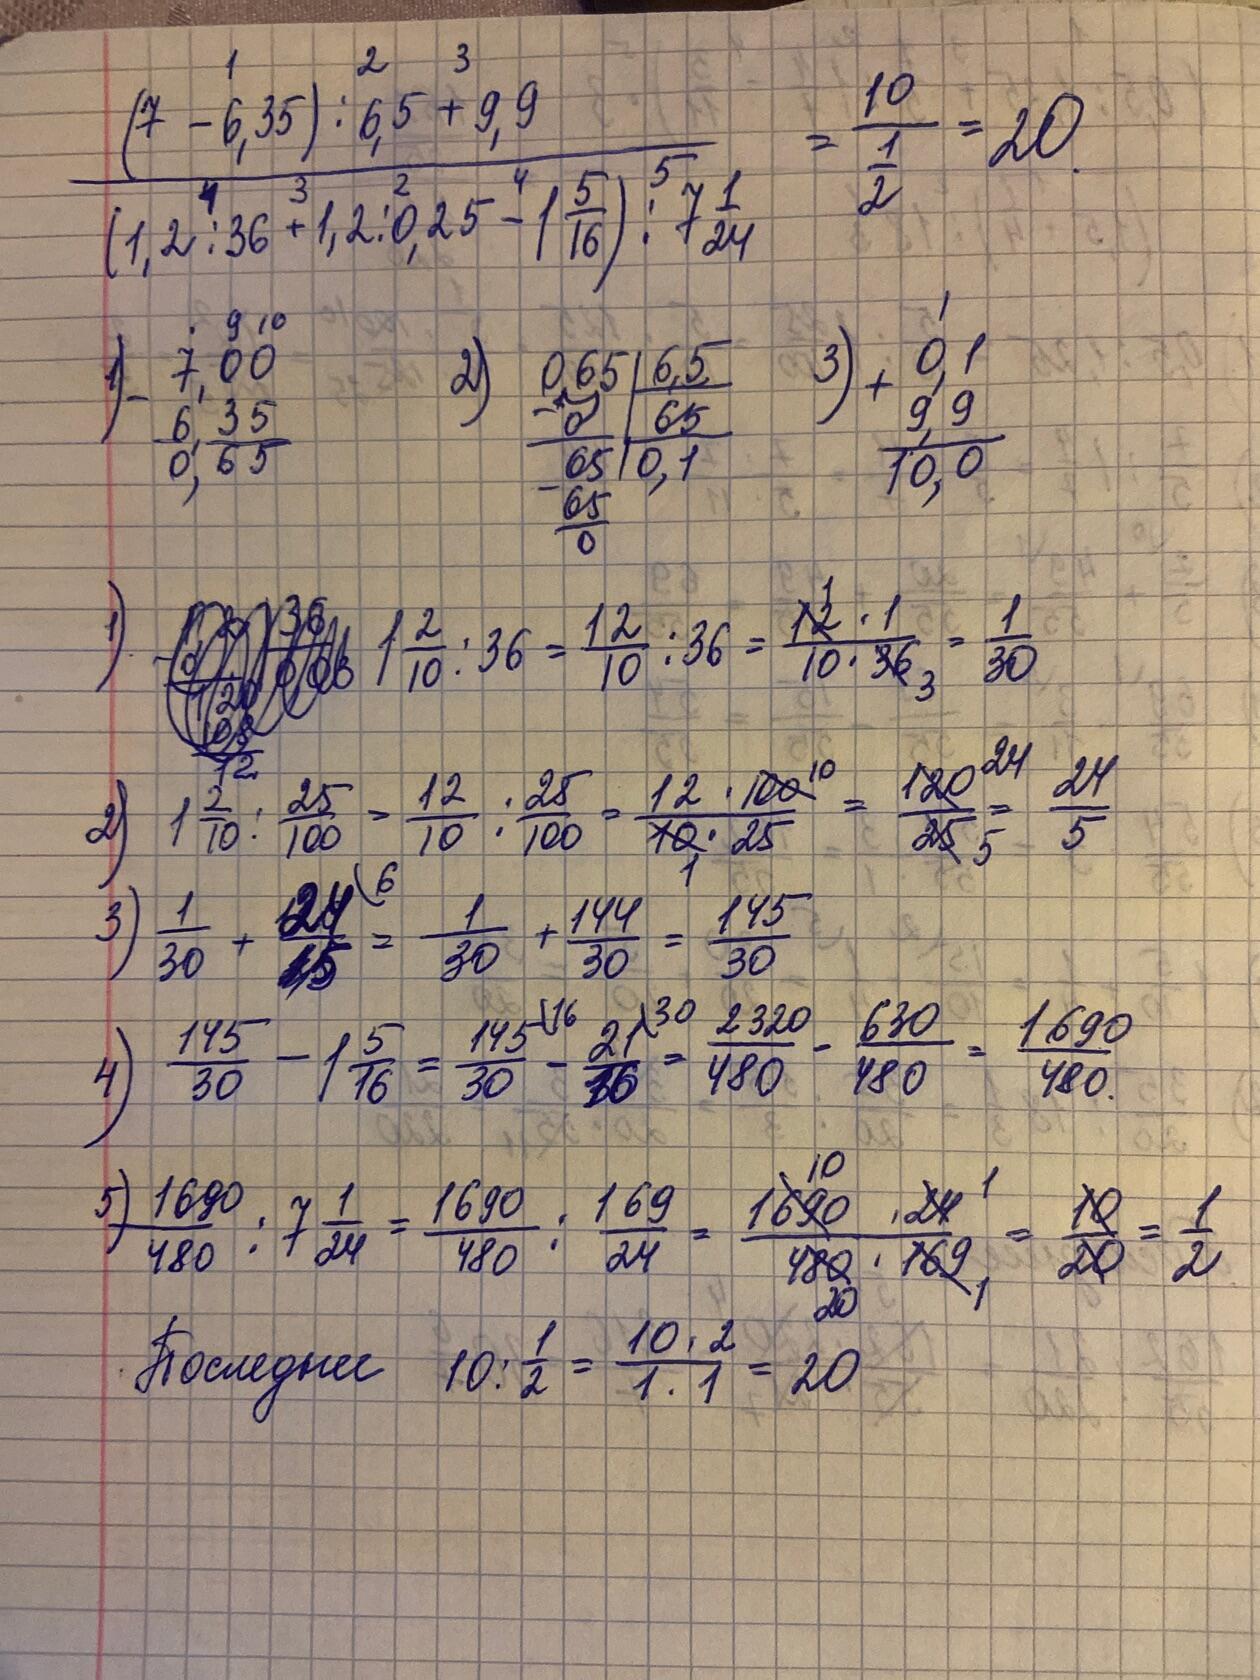 1 2 3
(7 - 6,35) : 6,5 + 9,9 = 10 / 1/2 = 20.
4 3 2 4 5
(1,2 : 36 + 1,2 : 0,25 - 1 5/16) : 7 1/24
1) 7,00 - 6,35 = 0,65
2) 0,65 | 6,5
- 0 | 65
65 | 0,1
- 65
0
3) 0,1 + 9,9 = 10,0
1) 1 2/10 : 36 = 12/10 : 36 = 12 · 1 / 10 · 36 = 1/30
2) 1 2/10 : 25/100 = 12/10 : 25/100 = 12 · 100 / 10 · 25 = 120/25 = 24/5
3) 1/30 + 24/5 \6 = 1/30 + 144/30 = 145/30
4) 145/30 - 1 5/16 = 145/30 \16 - 21/16 \30 = 2320/480 - 630/480 = 1690/480.
5) 1690/480 : 7 1/24 = 1690/480 : 169/24 = 1690 · 24 / 480 · 169 = 10/20 = 1/2
Последнее 10 : 1/2 = 10 · 2 / 1 · 1 = 20